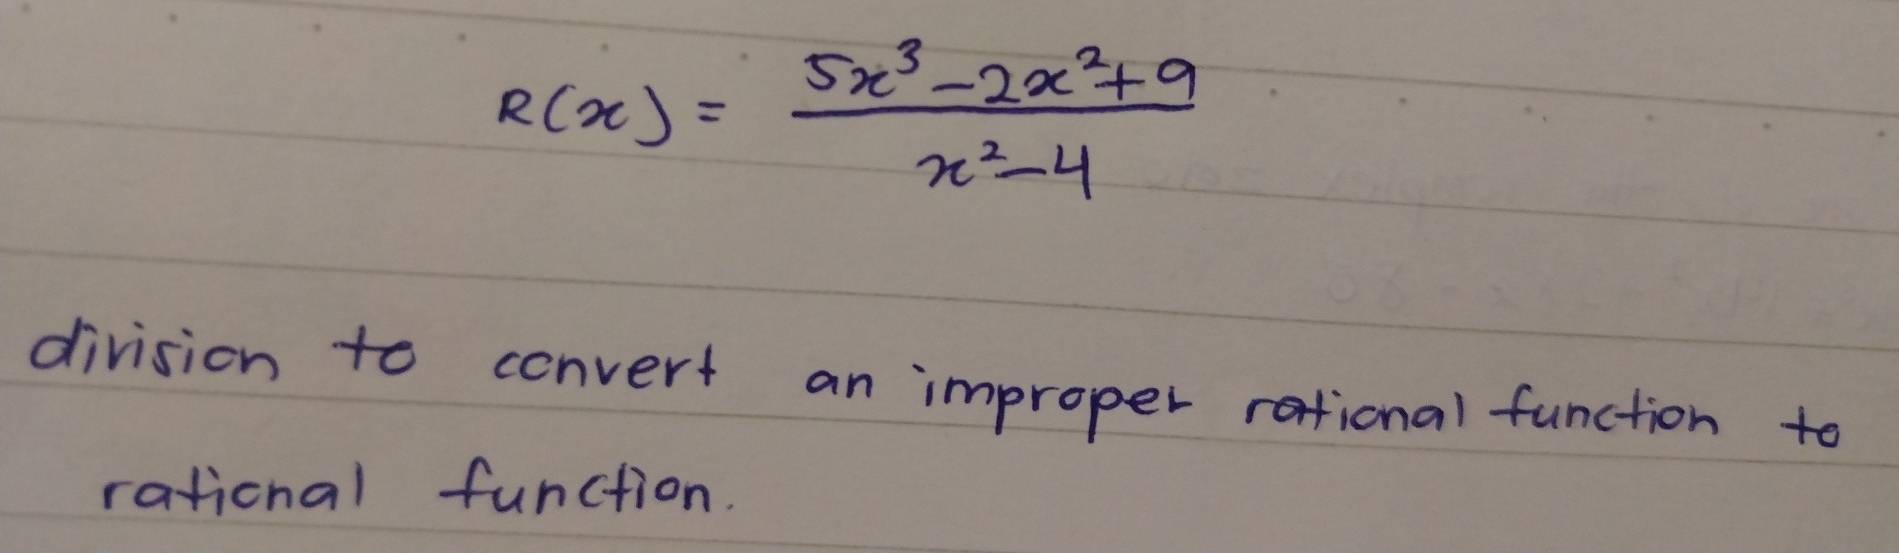 R(x) = 5x³ - 2x² + 9 / x² - 4
division to convert an improper rational function to
rational function.